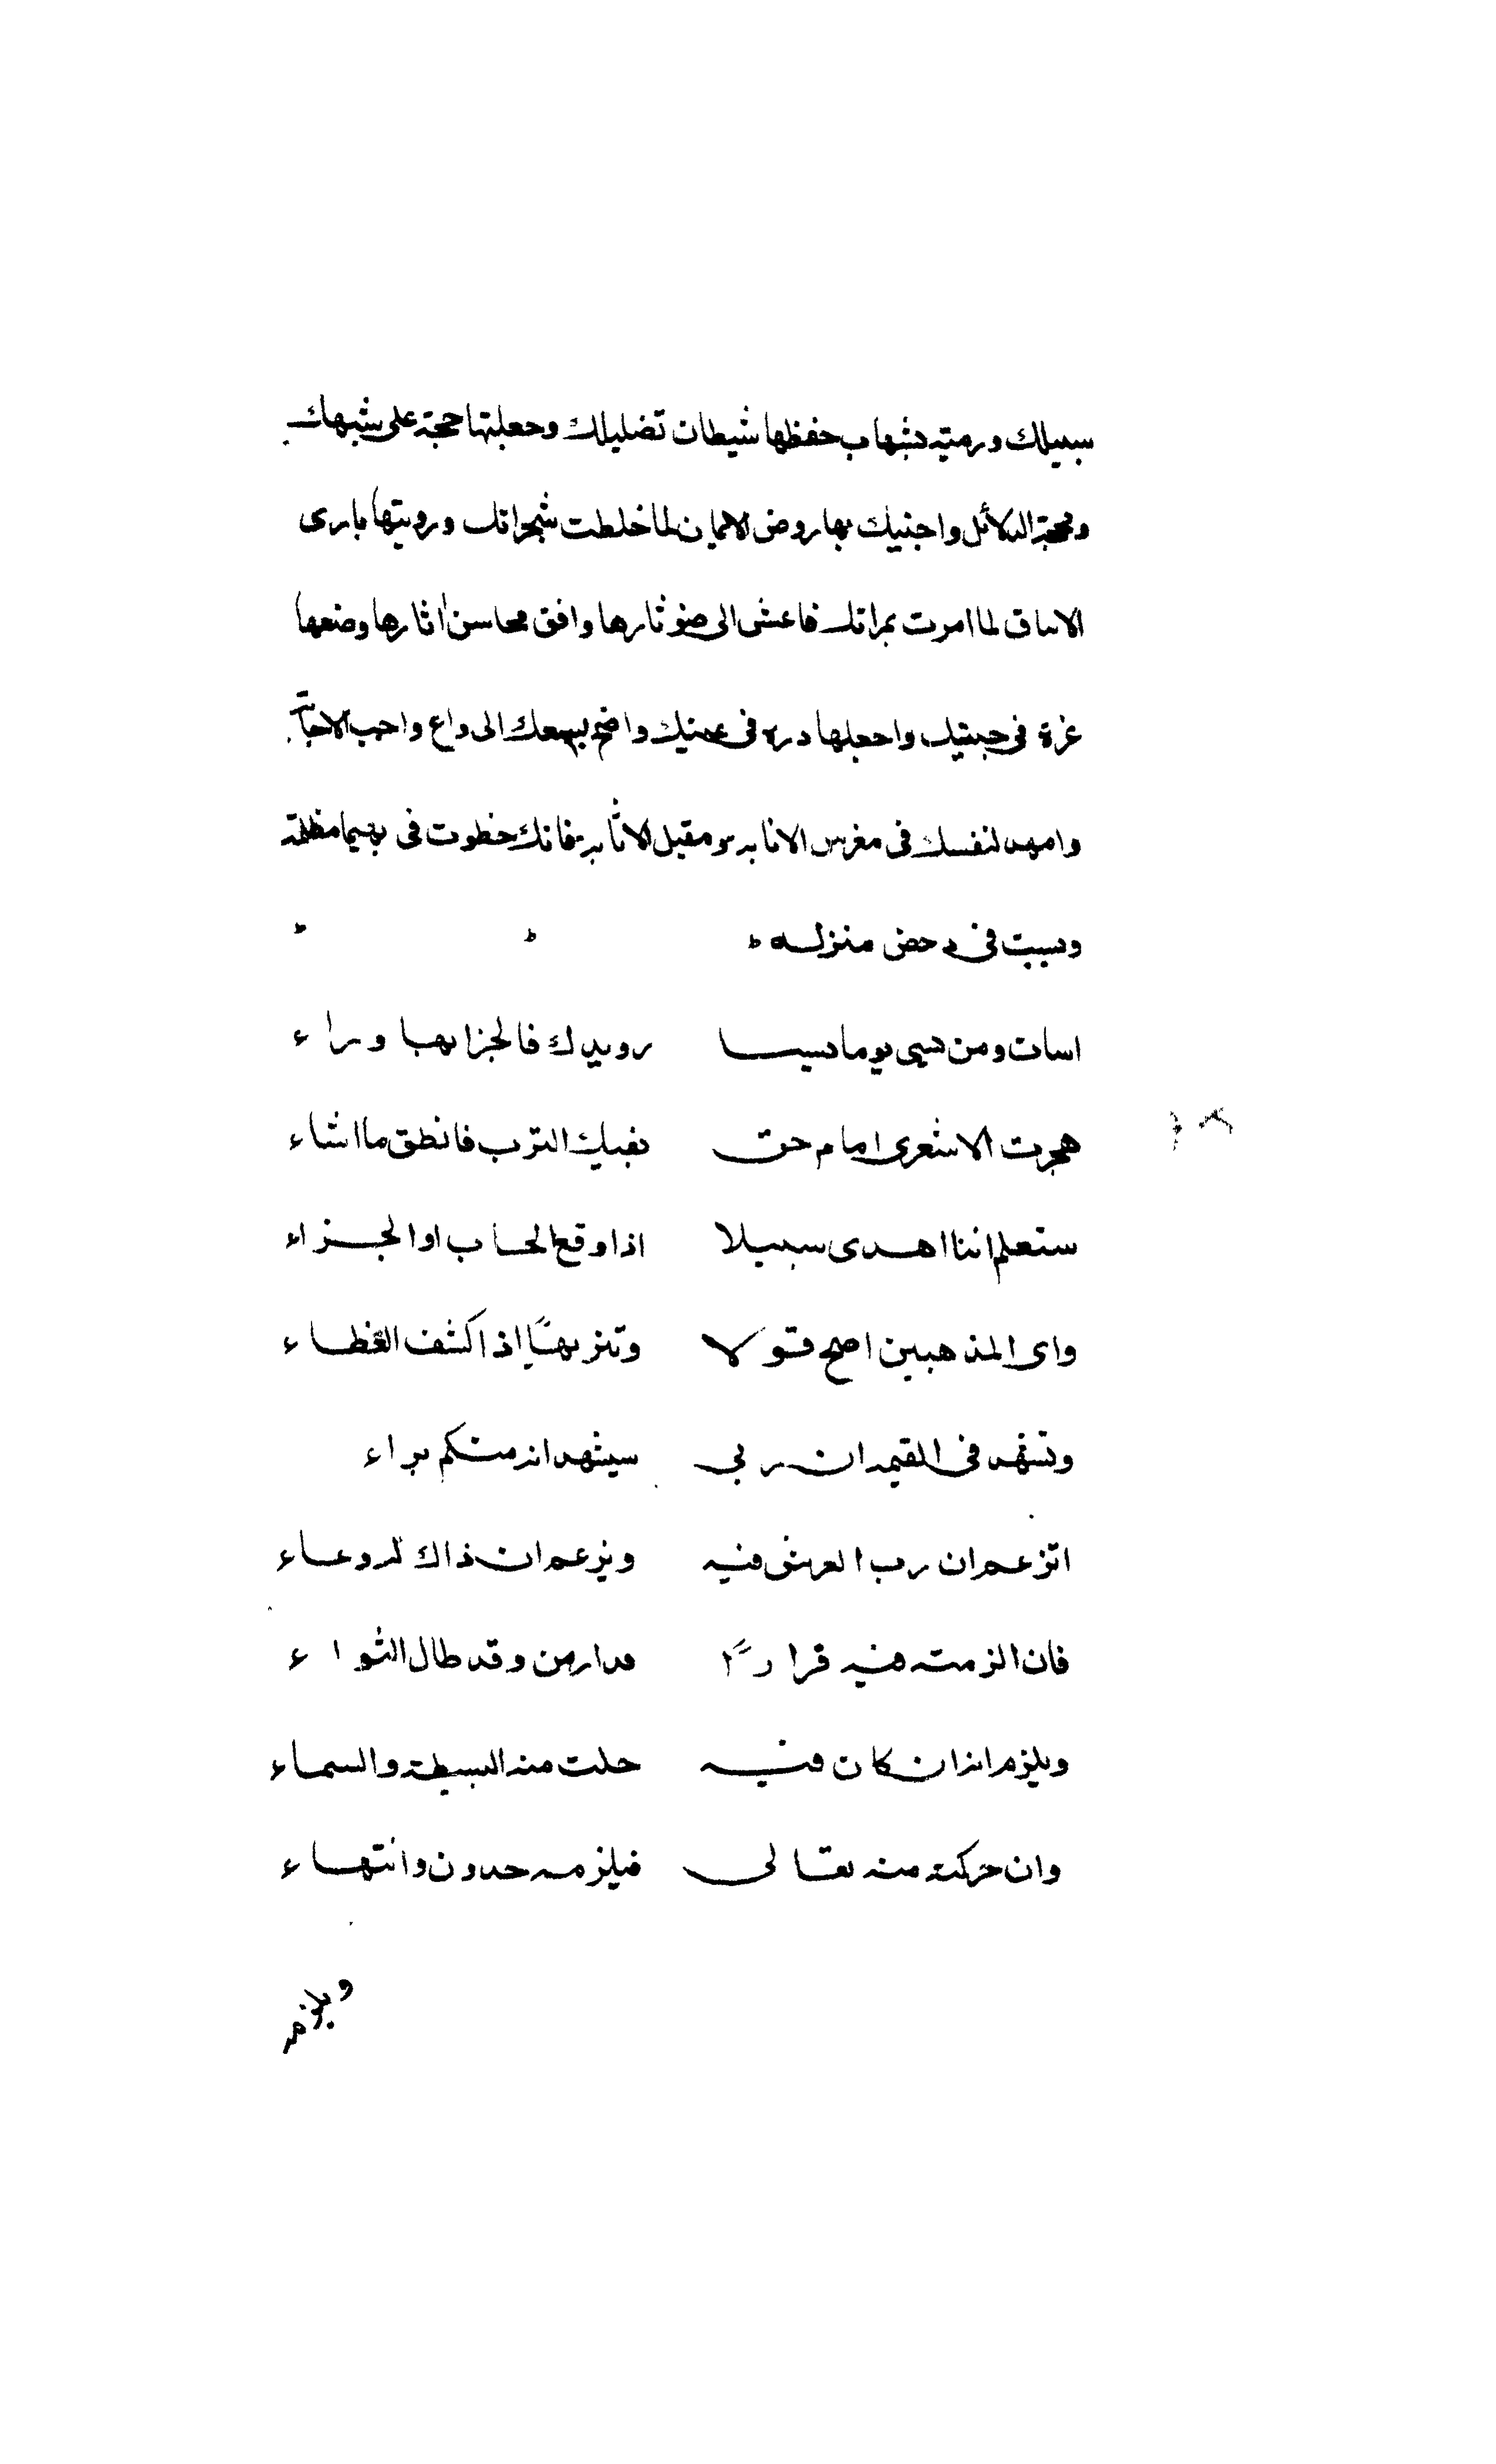 سبيلك ورميته بشهاب حفظها شيطان تضليلك وجعلتها حجة على شبهك
ومحجة الدلائل واجنيك بها روض الايمان لما خلطت شجراتك ورويتها بارى
الاساق لما امرت بمراتك فاعش الى ضو نارها وافق محاسن اثارها وضعها
غرة في جبيتك واجعلها درة في عينيك واضح بسمعك الى داع واجب الاجابة
وامهد لنفسك في مغرس الانابه ومقبل الاثابه فانك خطوت في بهيما مظلمة
وسبت في دحض منزله
اسات ومن يسيى يوما يسيا رويدك فالجزا بها وراء
هجرت الاشعرى امام حق بفيك الترب فانطق ما اشاء
ستعلم اننا اهدى سبيلا اذا وقع الحساب او الجزاء
واى المذهبين اصح قولا وتنزيها اذا كشف الغطاء
وتشهد في القيمه ان ربى سيشهد انه منكم براء
اتزعم ان رب العرش فيه ويزعم ان ذاك له وعاء
فان الزمته فيه قرارا فدا رهن وقد طال الثواء
ويلزم انه ان كان فيه خلت منه البسيطة والسماء
وان حركته منه تعالى فيلزمه حدود وانتهاء
ويلزمه